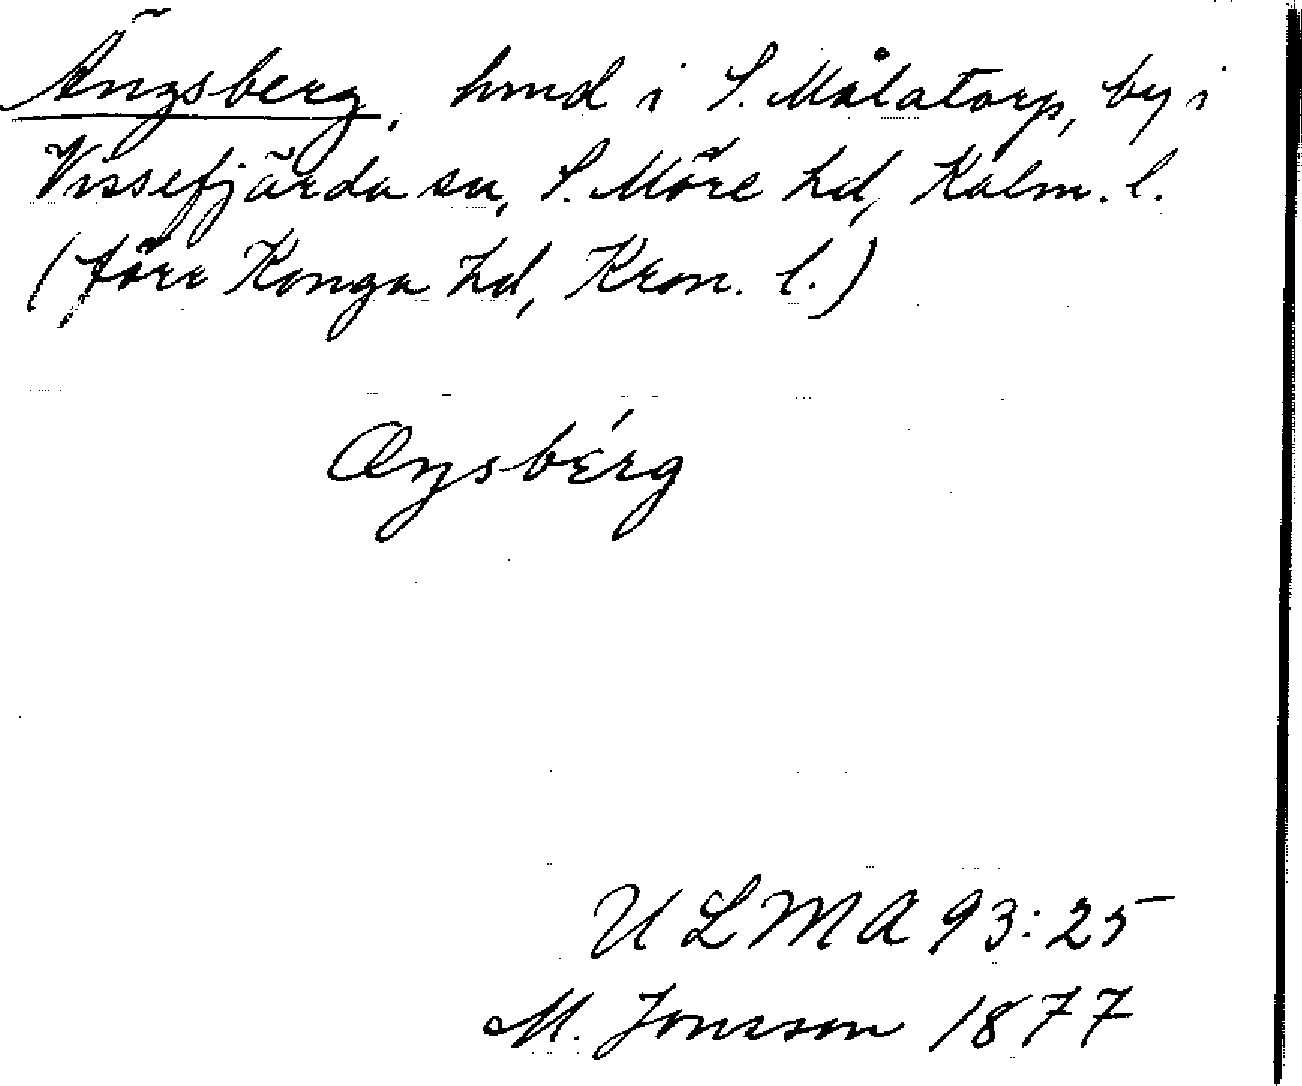 Ängsberg, hmd i S. Målatorp, by i
Vissefjärda sn, S. Möre hd, Kalm. l.
(förr Konga hd, Kron. l.)
Œŋsbérg
ULMA 93:25
M. Jonsson 1877